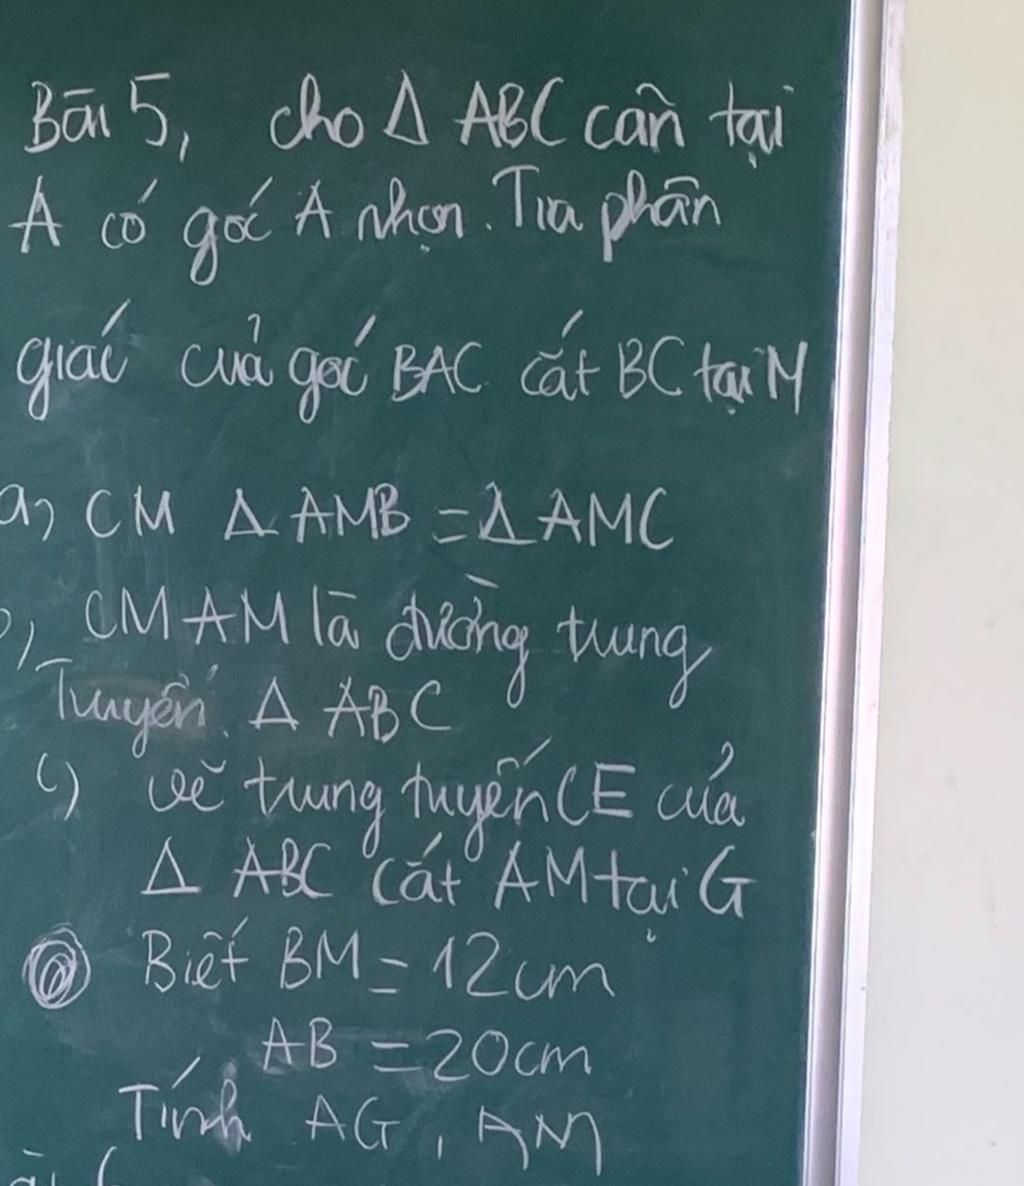 Bài 5, cho Δ ABC cân tại
A có góc A nhọn. Tia phân
giác của góc BAC cắt BC tại M
a, CM Δ AMB = Δ AMC
b, CM AM là đường trung
Tuyến Δ ABC
c) vẽ trung tuyến CE của
Δ ABC cắt AM tại G
Biết BM = 12cm
AB = 20cm
Tính AG, AM